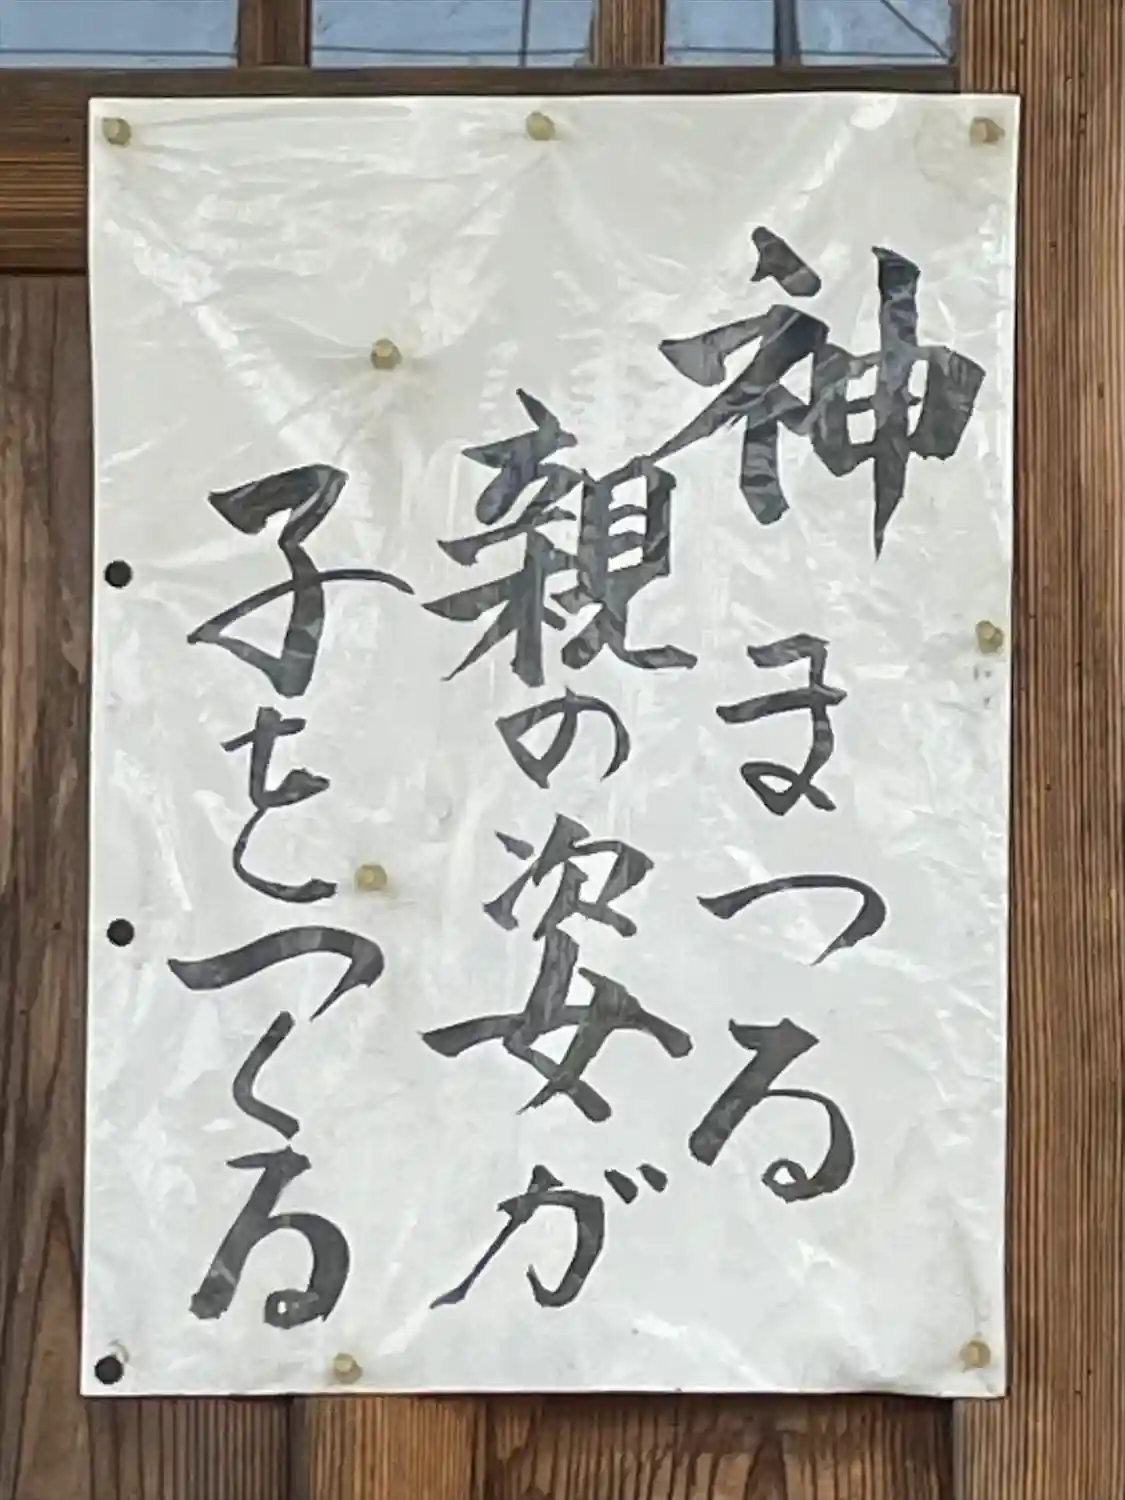 神まつる
親の姿が
子をつくる